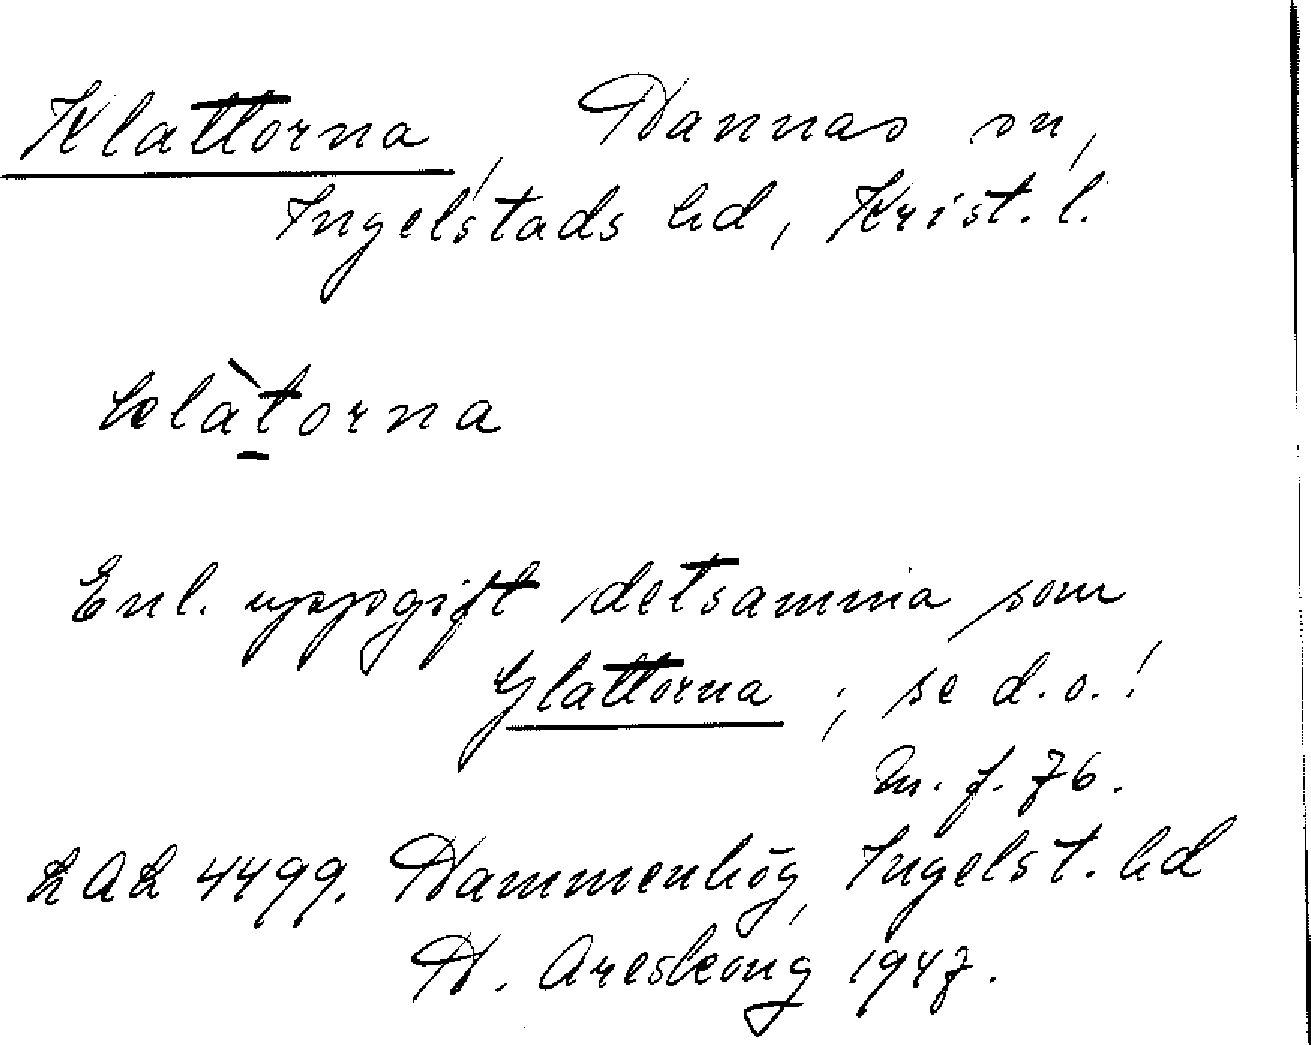 Klattorna, Hannas sn,
Ingelstads hd, Krist. l.
klàtorna
Enl. uppgift detsamma som
Glattorna; se d.o.!
m. f. 76.
LAL 4499. Hammenhög, Ingelst. hd
H. Areskoug 1947.